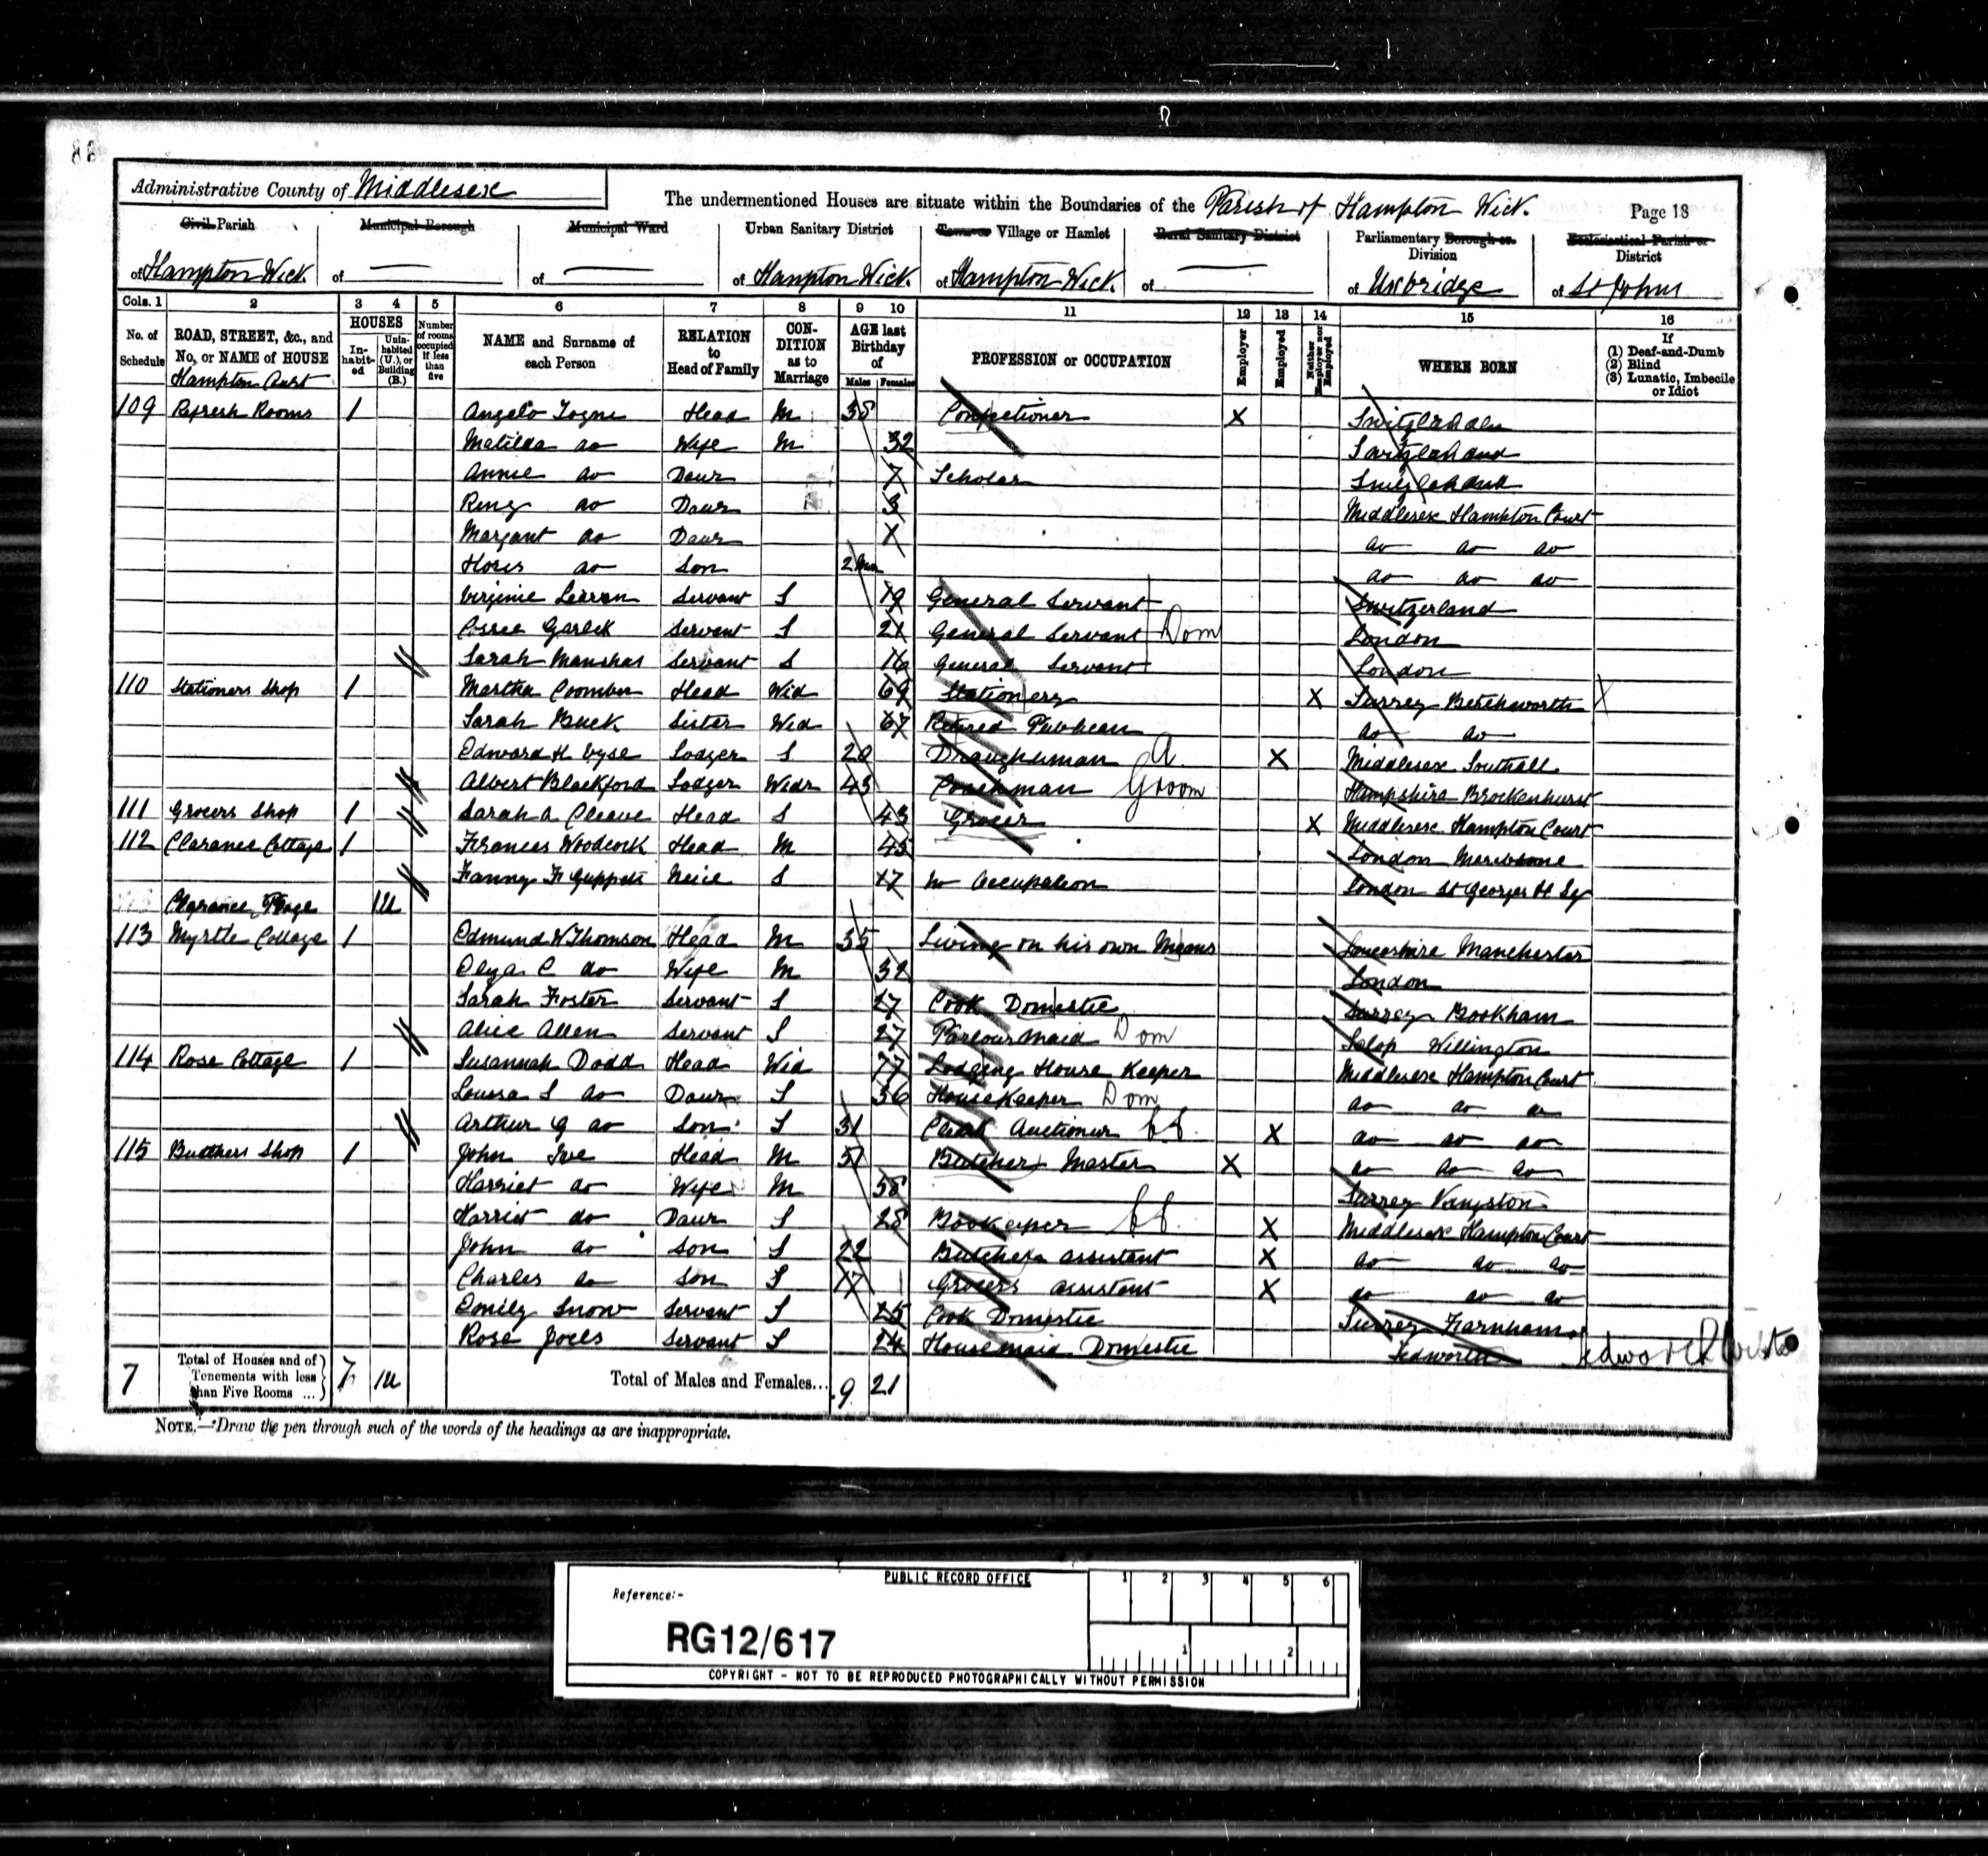 Administrative County of Middlesex
The undermentioned Houses are situate within the Boundaries of the Parish of Hampton Wick.
Page 18
Civil Parish
Municipal Borough
Municipal Ward
Urban Sanitary District
Town or Village or Hamlet
Rural Sanitary District
Parliamentary Borough or Division
Ecclesiastical Parish or District
of Hampton Wick. of — of — of Hampton Wick. of Hampton Wick. of — of Uxbridge of St Johns
Cols. 1 2 3 4 5 6 7 8 9 10 11 12 13 14 15 16
No. of Schedule
ROAD, STREET, &c., and No. or NAME of HOUSE
HOUSES
In-habit-ed
Unin-habited (U.), or Building (B.)
Number of rooms occupied if less than five
NAME and Surname of each Person
RELATION to Head of Family
CON-DITION as to Marriage
AGE last Birthday of
Males Females
PROFESSION or OCCUPATION
Employer
Employed
Neither Employer nor Employed
WHERE BORN
If
(1) Deaf-and-Dumb
(2) Blind
(3) Lunatic, Imbecile or Idiot
Hampton Court
109 Refresh Rooms 1 Angelo Togni Head M 38 Confectioner X
Matilda do Wife M 32
Annie do Daur 7 Scholar
do Daur 3 Middlesex Hampton Court
do Daur do do do
do Son 2 mo do do do
Virginie Servant S 19 General Servant Switzerland
Servant S 21 General Servant Dom London
Sarah Servant S 16 General Servant London
110 Stationers Shop 1 Martha Coomber Head Wid 69 Stationery X Surrey Betchworth
Sarah Buck Sister Wid 67 Retired Publican do do
Edward H Vyse Lodger S 20 Draughtsman A X Middlesex Southall
Albert Blackford Lodger Widr 43 Coachman Groom Hampshire Brockenhurst
111 Grocers Shop 1 Sarah A Cleave Head S 43 Grocer X Middlesex Hampton Court
112 Clarance Cottage 1 Frances Woodcock Head M 45 London
Fanny F Neice S 17 No Occupation London St Georges H Sq
Clarance 1U
113 Myrtle Cottage 1 Edmund W Thomson Head M 35 Living on his own Means Manchester
Eliza C do Wife M 32 London
Sarah Foster Servant S 27 Cook Domestic Surrey Bookham
Alice Allen Servant S 27 Parlourmaid Dom Salop Willington
114 Rose Cottage 1 Susannah Dodd Head Wid 77 Lodging House Keeper Middlesex Hampton Court
Louisa S do Daur S 36 Housekeeper Dom do do do
Arthur G do Son S 31 Clerk Auctioneer X do do do
115 Butchers Shop 1 John Ive Head M 51 Butcher Master X do do do
Harriet do Wife M 58 Surrey Kingston
Harriet do Daur S 28 Bookeeper X Middlesex Hampton Court
John do Son S 22 Butchers assistant X do do do
Charles do Son S 17 Grocers assistant X do do do
Emily Snow Servant S 25 Cook Domestic Surrey Farnham
Rose Servant S 24 Housemaid Domestic Tedworth
7 Total of Houses and of Tenements with less than Five Rooms ... 7 1U Total of Males and Females... 9 21
NOTE.—Draw the pen through such of the words of the headings as are inappropriate.
PUBLIC RECORD OFFICE
1 2 3 4 5 6
Reference:-
RG12/617
1 2
COPYRIGHT - NOT TO BE REPRODUCED PHOTOGRAPHICALLY WITHOUT PERMISSION